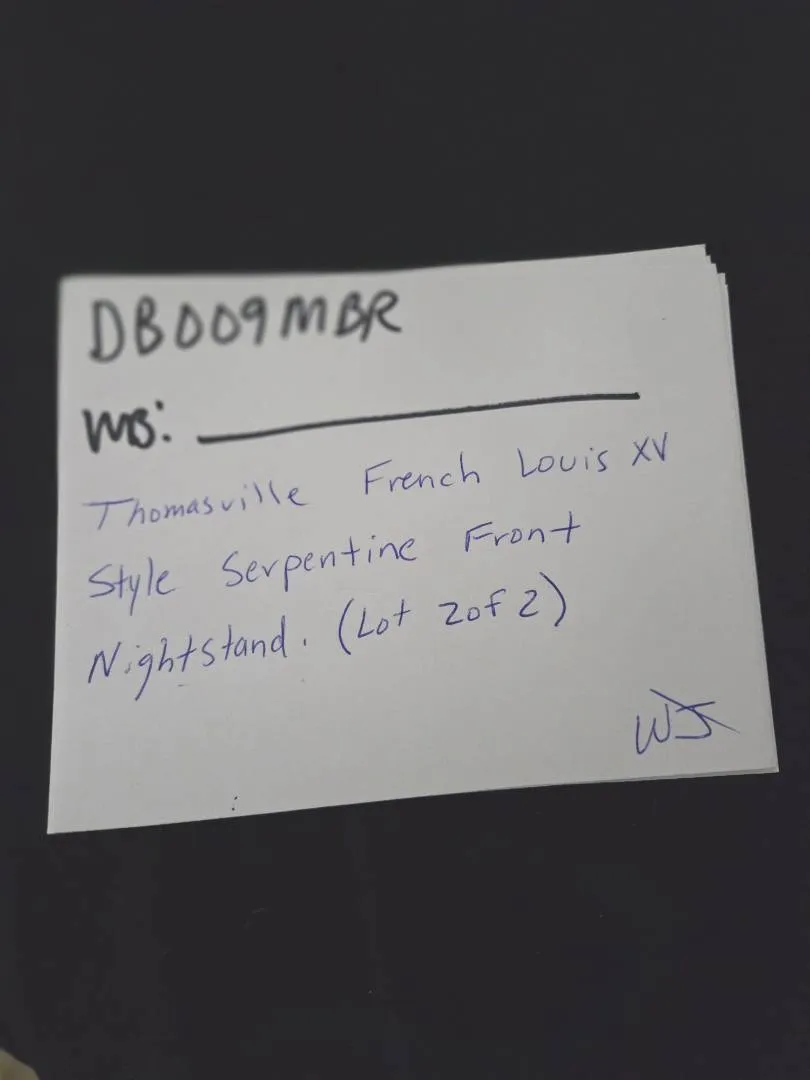 DB009MBR
MB: ____________
Thomasville French Louis XV
Style Serpentine Front
Nightstand. (Lot 2 of 2)
WJ